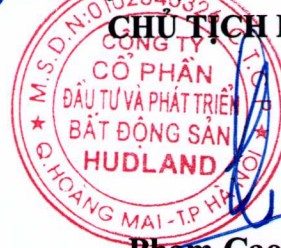 CHỦ TỊCH
M.S.D.N:
C.T.C.P
CÔNG TY
CỔ PHẦN
ĐẦU TƯ VÀ PHÁT TRIỂN
BẤT ĐỘNG SẢN
HUDLAND
Q.HOÀNG MAI-T.P HÀ NỘI